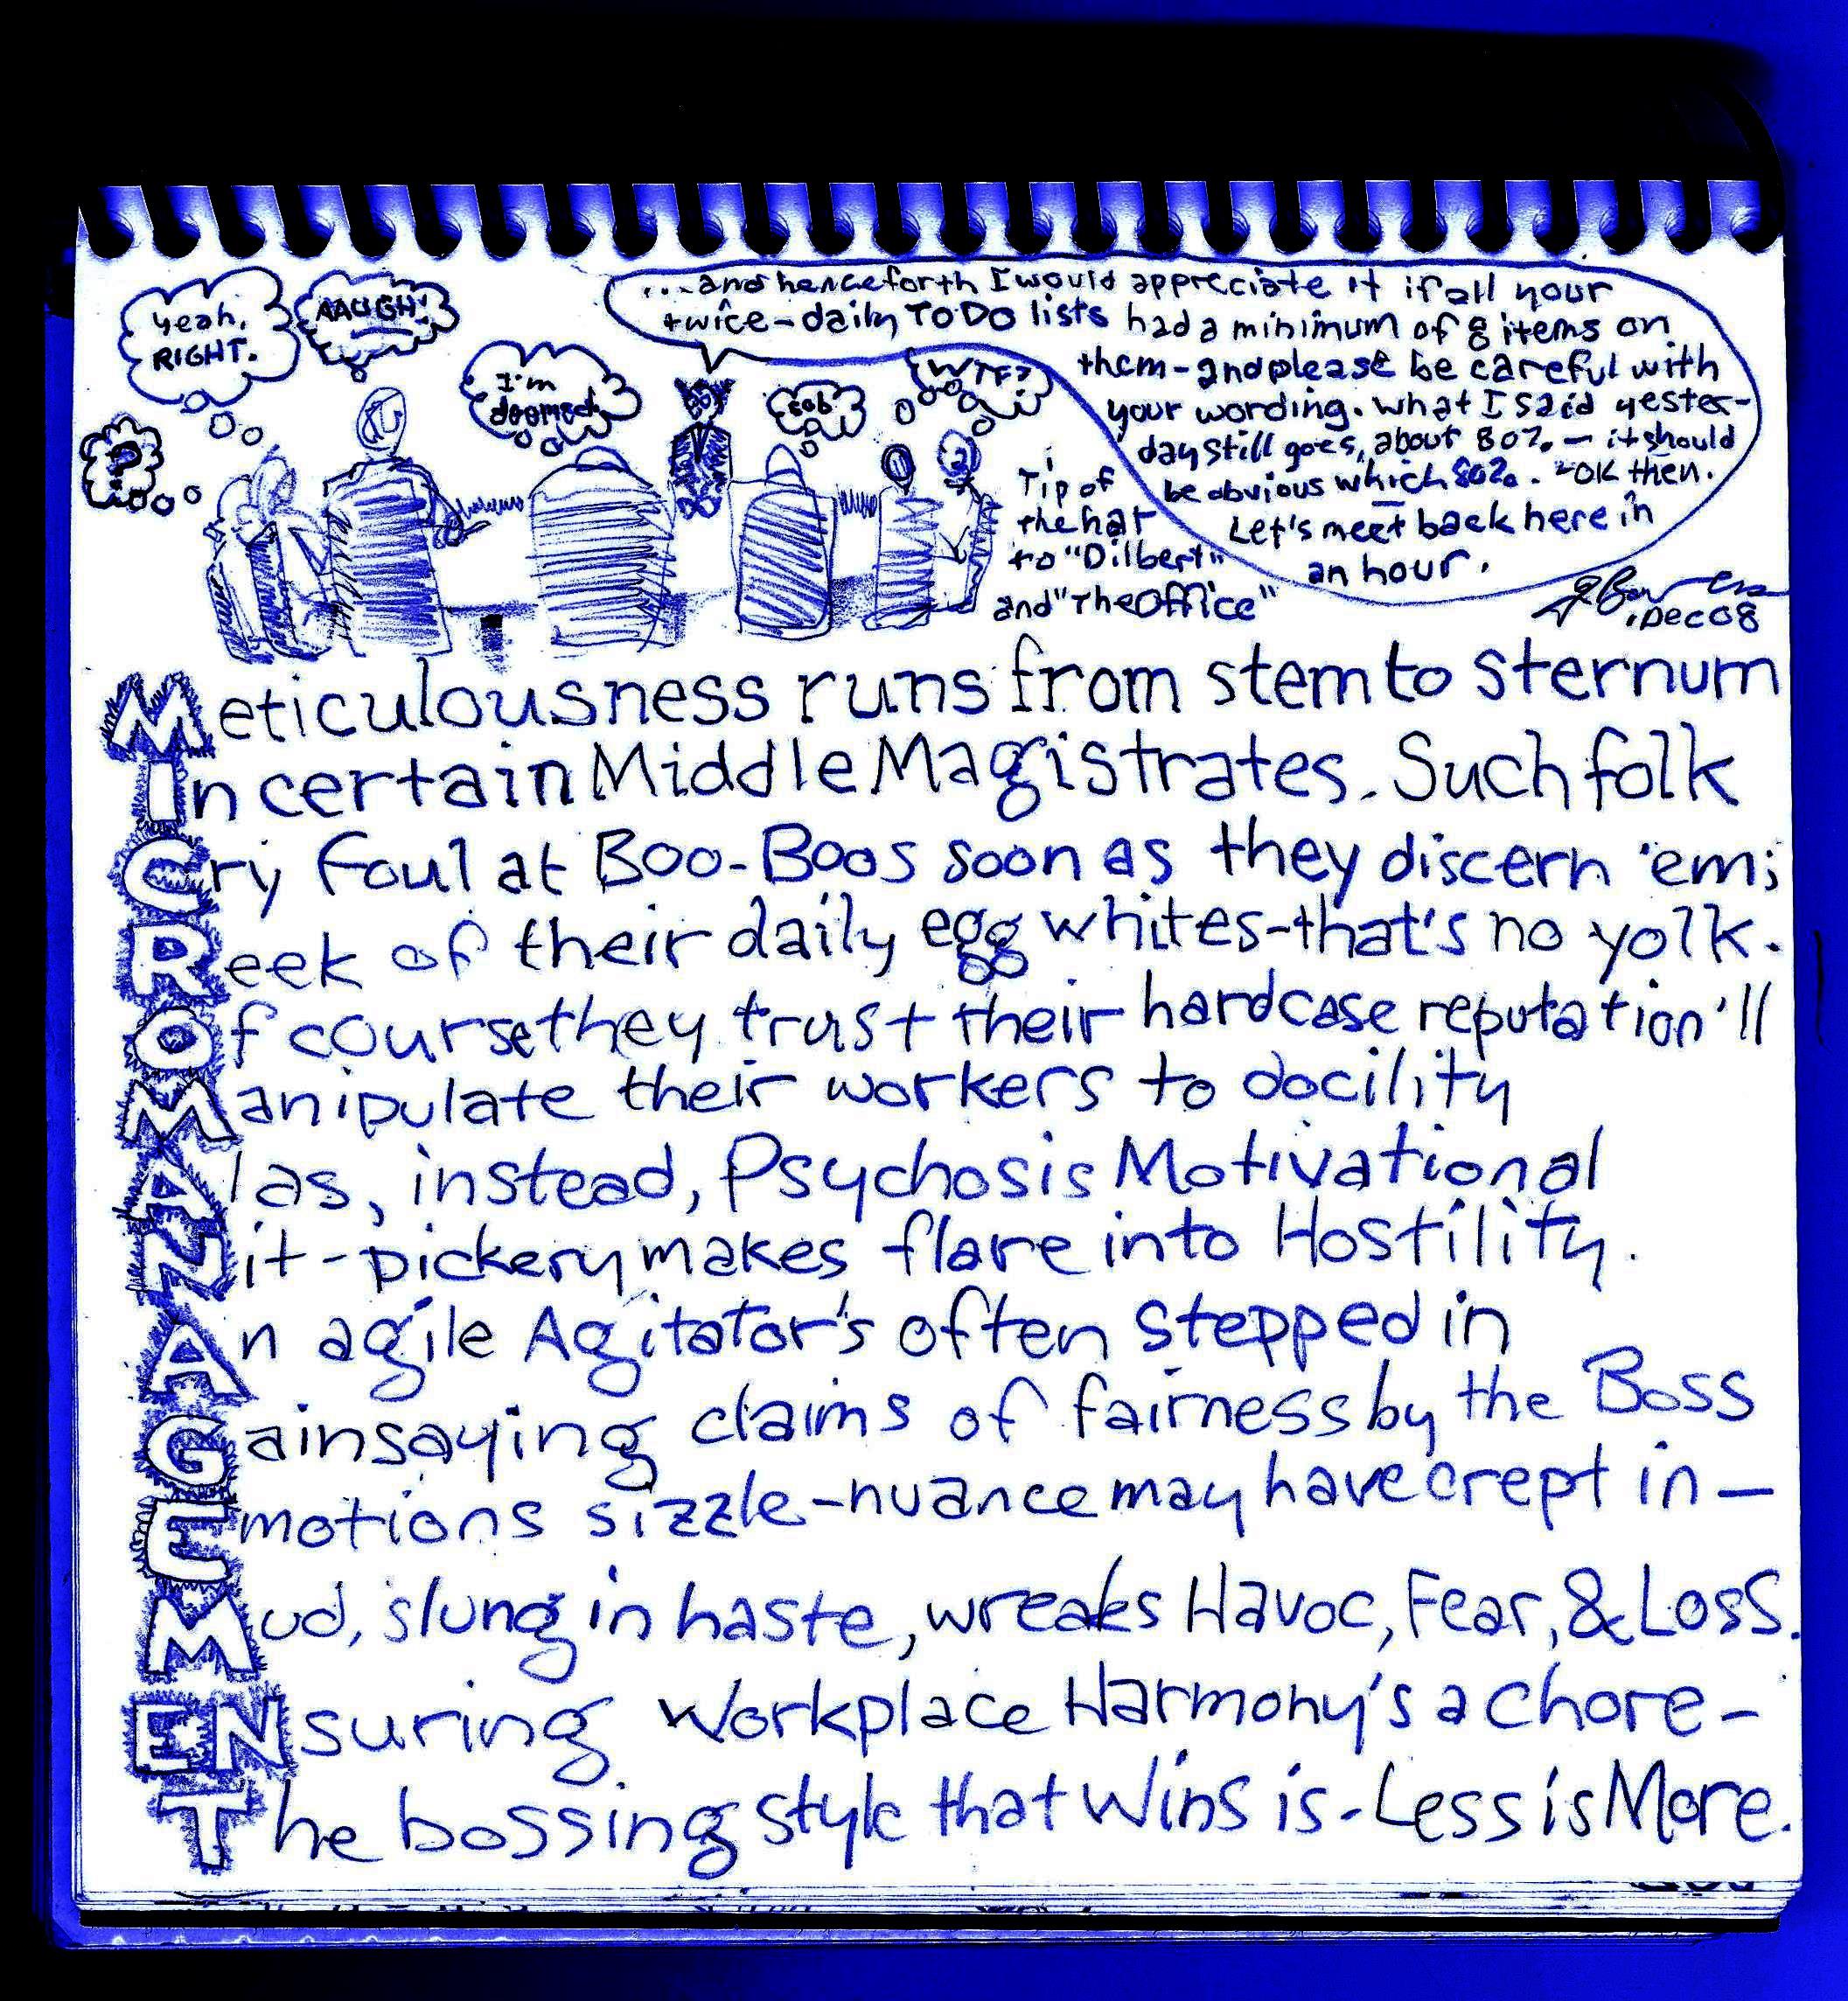 yeah,
RIGHT.
AAUGH!
?
I'm
doomed
sob
WTF?
...and henceforth I would appreciate it if all your
twice-daily TO DO lists had a minimum of 8 items on
them-and please be careful with
your wording. What I said yester-
day still goes, about 80% - it should
be obvious which 80%. -OK then.
Let's meet back here in
an hour.
Tip of
the hat
to "Dilbert"
and "The Office"
Dec 08
Meticulousness runs from stem to sternum
In certain Middle Magistrates. Such folk
Cry Foul at Boo-Boos soon as they discern 'em;
Reek of their daily egg whites-that's no yolk.
Of course they trust their hardcase reputation'll
Manipulate their workers to docility
Alas, instead, Psychosis Motivational
Nit-pickery makes flare into Hostility.
An agile Agitator's often stepped in
Gainsaying claims of fairness by the Boss
Emotions sizzle-nuance may have crept in-
Mud, slung in haste, wreaks Havoc, Fear, & Loss.
ENsuring Workplace Harmony's a chore-
The bossing style that Wins is-Less is More.